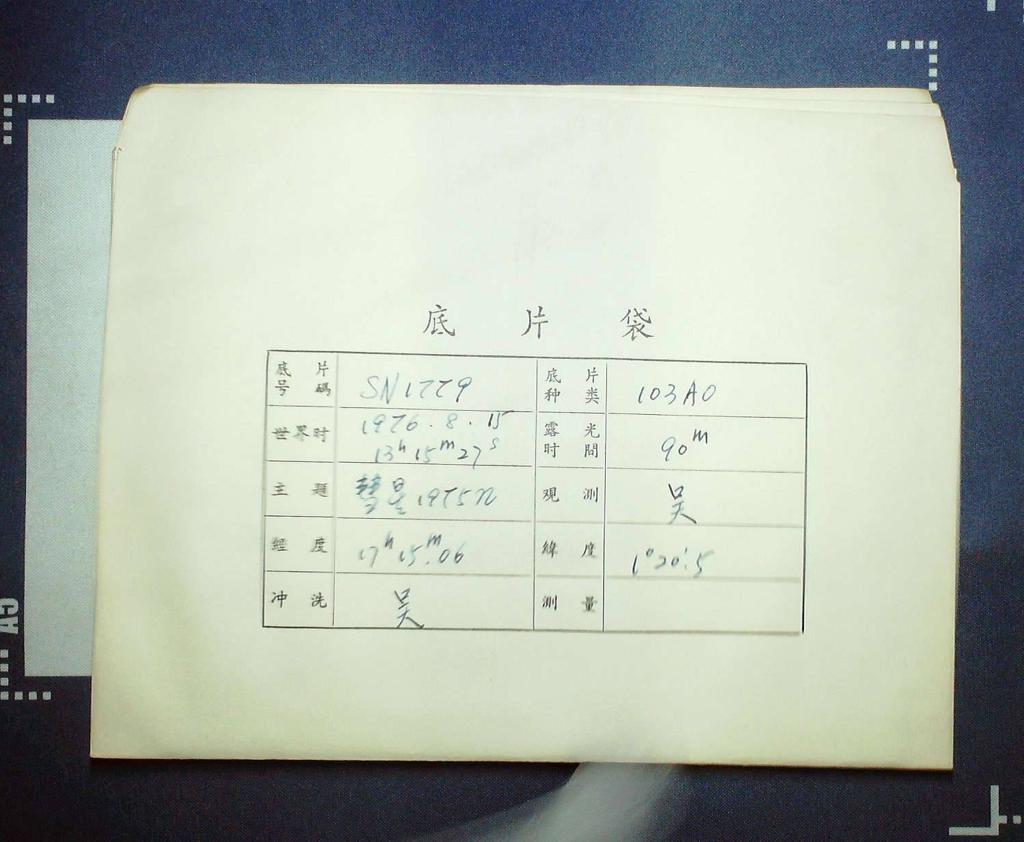 底片袋
底片号碼 SN1779 底片种类 103AO
世界时 1976.8.15 13h15m27s 露光时間 90m
主題 彗星1975n 观測 吴
經度 17h15m.06 緯度 1°20'.5
冲洗 吴 測量
A5